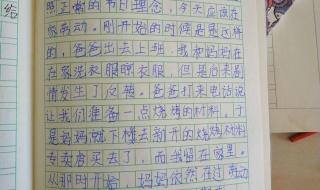 给
照正常的节日理念，今天应该在
家劳动。刚开始的时候是是这样
的，爸爸出去上班，我和妈妈在
在家洗衣服晒衣服，但是后来剧
情发生了反转。爸爸打来电话说
让我们准备一点烧烤的材料。于
是妈妈就下楼去新开的烧烤材料
专卖店买去了，而我留在家里。
从那时开始，妈妈依然在过劳动